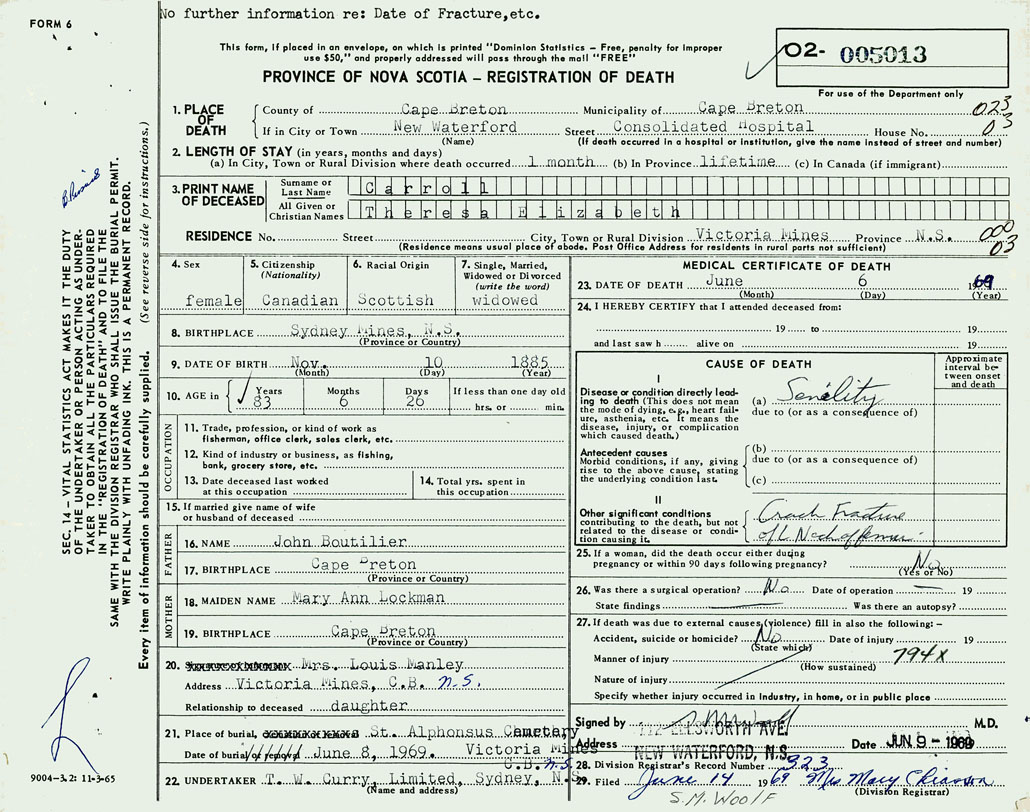 FORM 6
No further information re: Date of Fracture,etc.
This form, if placed in an envelope, on which is printed "Dominion Statistics – Free, penalty for improper
use $50," and properly addressed will pass through the mail "FREE"
PROVINCE OF NOVA SCOTIA – REGISTRATION OF DEATH
02- 005013
For use of the Department only
1. PLACE OF DEATH County of Cape Breton Municipality of Cape Breton 023
If in City or Town New Waterford Street Consolidated Hospital House No. 03
(Name) (If death occurred in a hospital or institution, give the name instead of street and number)
2. LENGTH OF STAY (in years, months and days)
(a) In City, Town or Rural Division where death occurred 1 month (b) In Province lifetime (c) In Canada (if immigrant)
3. PRINT NAME OF DECEASED
Surname or Last Name Carroll
All Given or Christian Names Theresa Elizabeth
RESIDENCE No. Street City, Town or Rural Division Victoria Mines Province N.S. 000
(Residence means usual place of abode. Post Office Address for residents in rural parts not sufficient) 03
4. Sex
female
5. Citizenship
(Nationality)
Canadian
6. Racial Origin
Scottish
7. Single, Married,
Widowed or Divorced
(write the word)
widowed
8. BIRTHPLACE Sydney Mines, N.S.
(Province or Country)
9. DATE OF BIRTH Nov. 10 1885
(Month) (Day) (Year)
10. AGE in Years Months Days If less than one day old
83 6 26 hrs. or min.
OCCUPATION
11. Trade, profession, or kind of work as
fisherman, office clerk, sales clerk, etc.
12. Kind of industry or business, as fishing,
bank, grocery store, etc.
13. Date deceased last worked
at this occupation
14. Total yrs. spent in
this occupation
15. If married give name of wife
or husband of deceased
FATHER
16. NAME John Boutilier
17. BIRTHPLACE Cape Breton
(Province or Country)
MOTHER
18. MAIDEN NAME Mary Ann Lockman
19. BIRTHPLACE Cape Breton
(Province or Country)
20. Mrs. Louis Manley
Address Victoria Mines, C.B. N.S.
Relationship to deceased daughter
21. Place of burial, St. Alphonsus Cemetery
Date of burial or removal June 8, 1969. Victoria Mines
C.B. N.S.
22. UNDERTAKER T. W. Curry, Limited, Sydney, N.S.
(Name and address)
MEDICAL CERTIFICATE OF DEATH
23. DATE OF DEATH June 6 1969
(Month) (Day) (Year)
24. I HEREBY CERTIFY that I attended deceased from:
19 to 19
and last saw h alive on 19
CAUSE OF DEATH
Approximate
interval be-
tween onset
and death
I
Disease or condition directly lead-
ing to death (This does not mean
the mode of dying, e.g., heart fail-
ure, asthenia, etc. It means the
disease, injury, or complication
which caused death.)
(a) Senility
due to (or as a consequence of)
Antecedent causes
Morbid conditions, if any, giving
rise to the above cause, stating
the underlying condition last.
(b)
due to (or as a consequence of)
(c)
II
Other significant conditions
contributing to the death, but not
related to the disease or condi-
tion causing it.
Crack Fracture
of L Neck of femur.
25. If a woman, did the death occur either during
pregnancy or within 90 days following pregnancy? No
(Yes or No)
26. Was there a surgical operation? No Date of operation — 19
State findings Was there an autopsy?
27. If death was due to external causes (violence) fill in also the following: –
Accident, suicide or homicide? No Date of injury 19
(State which)
Manner of injury 794X
(How sustained)
Nature of injury
Specify whether injury occurred in industry, in home, or in public place
Signed by M.D.
Address ELLSWORTH AVE
NEW WATERFORD, N.S. Date JUN 9 - 1969
28. Division Registrar's Record Number 323
29. Filed June 14 1969 Mrs Mary Chiasson
(Division Registrar)
S.M. WOOLF
SEC. 14 – VITAL STATISTICS ACT MAKES IT THE DUTY
OF THE UNDERTAKER OR PERSON ACTING AS UNDER-
TAKER TO OBTAIN ALL THE PARTICULARS REQUIRED
IN THE "REGISTRATION OF DEATH" AND TO FILE THE
SAME WITH THE DIVISION REGISTRAR WHO SHALL ISSUE THE BURIAL PERMIT.
WRITE PLAINLY WITH UNFADING INK. THIS IS A PERMANENT RECORD.
Every item of information should be carefully supplied. (See reverse side for instructions.)
9004–3.2: 11-3-65